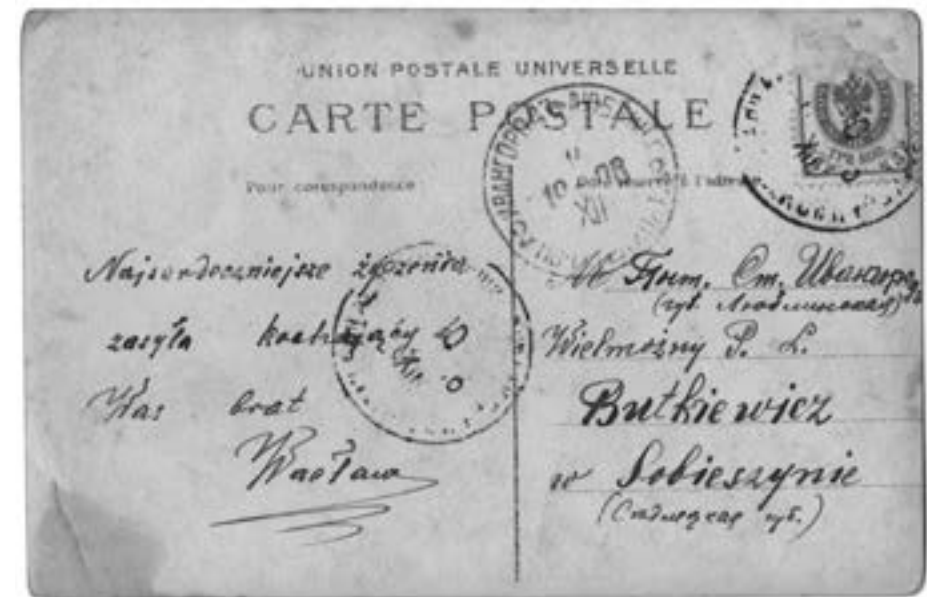 UNION POSTALE UNIVERSELLE
CARTE POSTALE
Pour correspondance
10 XII 08
Najserdeczniejsze życzenia
zasyła kochający
Was brat
Wacław
Ст. Ивангород
(губ. Люблинская)
Wielmożny P. L.
Butkiewicz
w Sobieszynie
(Сѣдлецкая губ.)